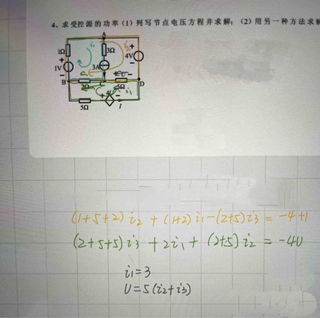 4、求受控源的功率(1)列写节点电压方程并求解;(2)用另一种方法求解
A
1Ω
3Ω
4V
1V
3A
B
D
5Ω
I
(1+5+2)i₂+(1+2)i₁-(2+5)i₃=-4+1
(2+5+5)i₃+2i₁+(2+5)i₂=-4U
i₁=3
U=5(i₂+i₃)